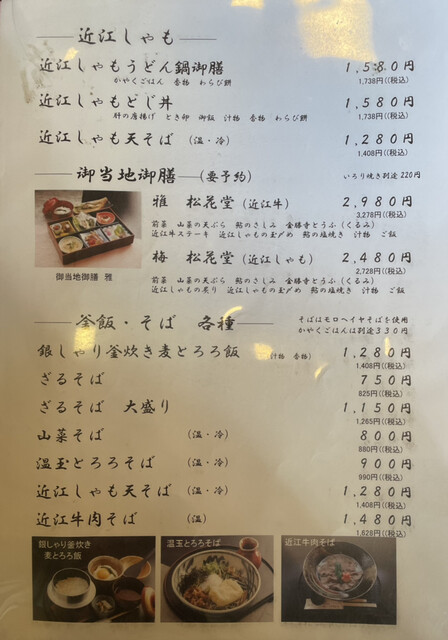 近江しゃも
近江しゃもうどん鍋御膳 1,580円
かやくごはん 香物 わらび餅 1,738円(税込)
近江しゃもどじ丼 1,580円
肝の唐揚げ とき卵 御飯 汁物 香物 わらび餅 1,738円(税込)
近江しゃも天そば (温・冷) 1,280円
1,408円(税込)
御当地御膳 (要予約) いろり焼き別途220円
雅 松花堂(近江牛) 2,980円
3,278円(税込)
前菜 山菜の天ぷら 鮎のさしみ 金勝寺とうふ(くるみ)
近江牛ステーキ 近江しゃもの玉〆め 鮎の塩焼き 汁物 ご飯
御当地御膳 雅
梅 松花堂(近江しゃも) 2,480円
2,728円(税込)
前菜 山菜の天ぷら 鮎のさしみ 金勝寺とうふ(くるみ)
近江しゃもの炙り 近江しゃもの玉〆め 鮎の塩焼き 汁物 ご飯
釜飯・そば 各種
そばはモロヘイヤそばを使用
かやくごはんは別途330円
銀しゃり釜炊き麦とろろ飯 (汁物 香物) 1,280円
1,408円(税込)
ざるそば 750円
825円(税込)
ざるそば 大盛り 1,150円
1,265円(税込)
山菜そば (温・冷) 800円
880円(税込)
温玉とろろそば (温・冷) 900円
990円(税込)
近江しゃも天そば (温・冷) 1,280円
1,408円(税込)
近江牛肉そば (温) 1,480円
1,628円(税込)
銀しゃり釜炊き
麦とろろ飯
温玉とろろそば
近江牛肉そば